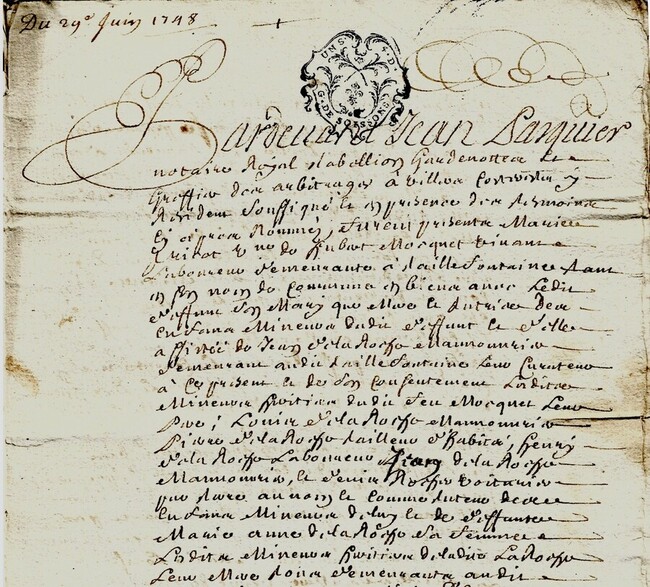 Du 29e Juin 1748
UNS. S. D.
G. DE SOISSONS
Pardevant Jean Parquier
notaire Royal Tabellion Gardenottes et
Greffier des arbitrages à Villers Cotterets y
Résident Soussigné et en presence des temoins
cy apres nommés, furent presents Marie
Mocquet vivant
Laboureur demeurante à Taillefontaine tant
en son nom de commune en biens avec Ledit
deffunt son Mary que Mere et tutrice des
Enfans Mineurs dudit deffunt et d'elle
assistée de Jean de la Roche Manouvrier
demeurant audit Taillefontaine Leur Curateur
à ce present et de son consentement Lesdits
Mineurs heritiers dudit feu Mocquet Leur
Pere; Louis de la Roche Manouvrier
Piere de la Roche tailleur d'habits, henry
de la Roche Laboureur Jean de la Roche
Manouvrier, et
que Pere au nom et comme tuteur des
Enfans Mineurs de luy et de deffunte
Marie anne de la Roche Sa femme
Lesdits Mineurs heritiers de ladite La Roche
Leur Mere tous demeurants audit